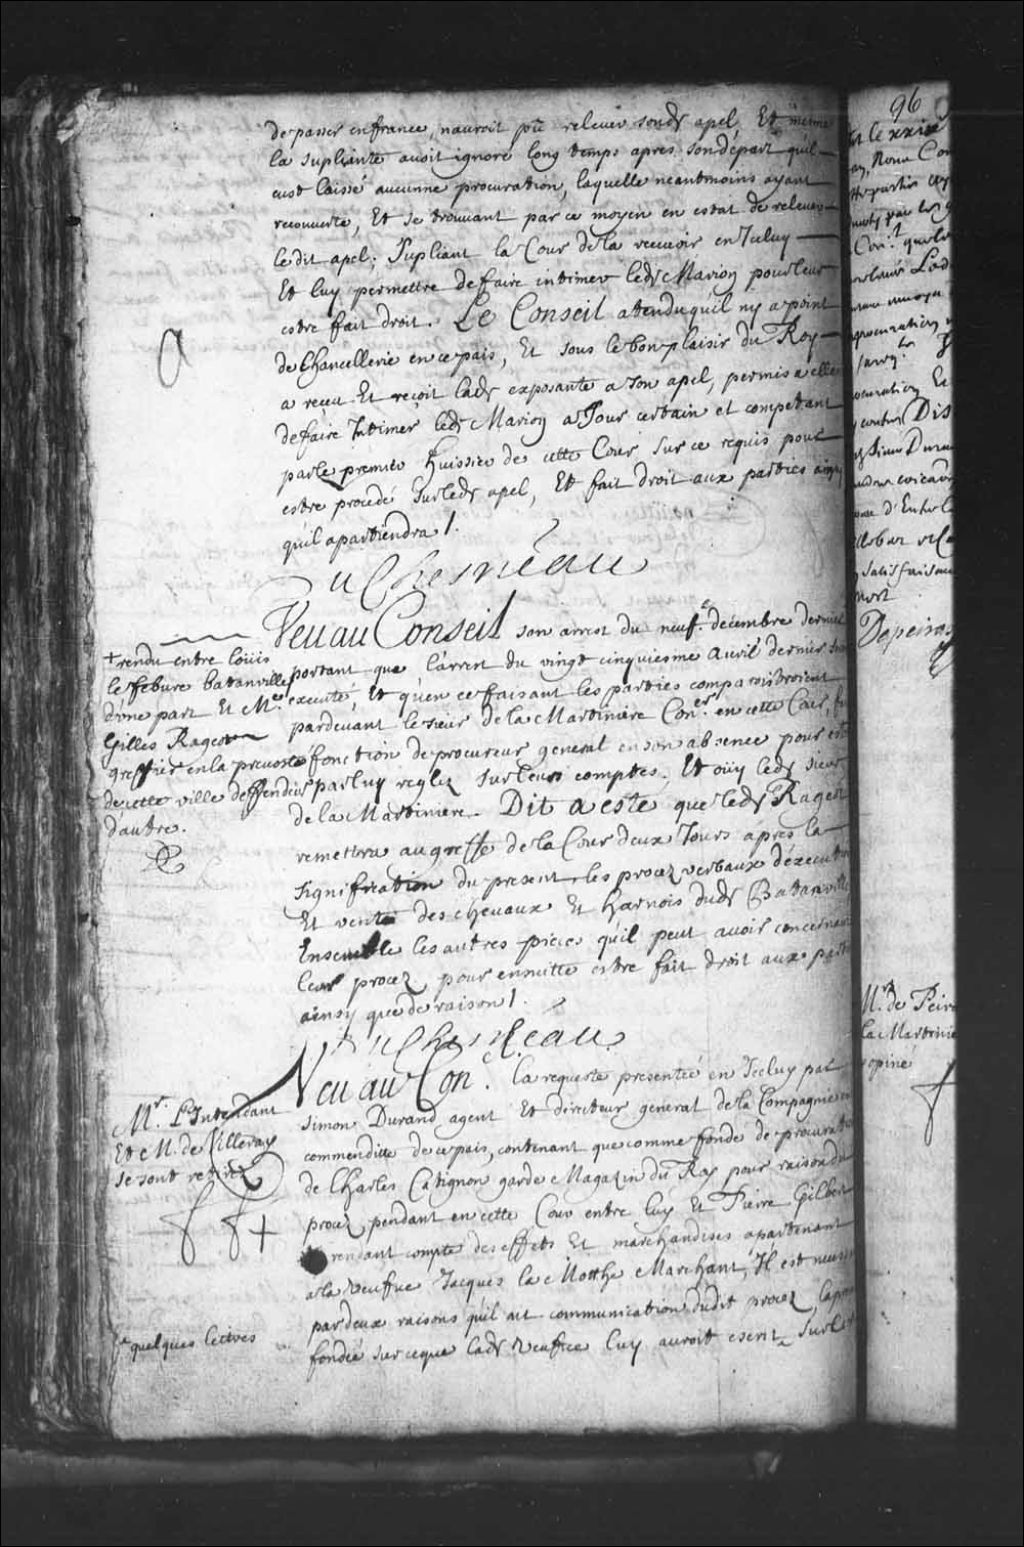 de passer en france, nauroit pû relever sondt apel, Et même
la supliante avoit ignoré long temps apres son départ quil
eust laissé aucunne procuration, laquelle neantmoins ayant
recouverte, Et se trouvant par ce moyen en estat de relever
ledit apel; Supliant la Cour de la recevoir en Iceluy
Et luy permettre de faire intimer ledt Marion pour leur
estre fait droit. Le Conseil atendu quil ny a point
de Chancellerie en ce pais, Et sous le bon plaisir du Roy
a receu Et reçoit ladt exposante a son apel, permis a elle
de faire Intimer ledt Marion a Jour certain et competant
par le premier huissier de cette Cour sur ce requis pour
estre procedé sur ledt apel, Et fait droit aux parties ainsy
qu'il apartiendra /.
DuChesneau
Veu au Conseil son arrest du neufe. decembre dernier
portant que l'arrest du vingt cinquiesme avril dernier
+ rendu entre loüis
le febure batanville
d'une part Et Me.
Gilles Rageot
greffier en la prevosté
de cette ville deffendeur
d'autre.
executé, Et qu'en ce faisant les parties comparoistroient
pardevant le sieur de la Martiniere Coner. en cette Cour,
fonction de procureur general en son absence pour estre
par luy reglez sur leurs comptes. Et oüy ledt sieur
de la Martiniere. Dit a esté que ledt Rageot
remettra au greffe de la Cour deux Jours apres la
signification du present les procez verbaux d'execution
Et vente des chevaux Et harnois dudt Batanville
Ensemble les autres pieces qu'il peut avoir concernant
leur procez pour ensuitte estre fait droit aux parties
ainsy que de raison /.
DuChesneau
Veu au Conl. la requeste presentée en Iceluy par
Mr. L'Intendant
Et M. de Villeray
se sont retirez
simon Durand agent Et directeur general de la Compagnie en
commenditte de ce pais, contenant que comme fondé de procuration
de Charles Catignon garde Magazin du Roy pour raison du
procez pendant en cette Cour entre luy Et Pierre Gilbert
rendant compte des effets Et marchandises apartenant
a la veufve Jacques la Motthe Marchant, Il est necessaire
par deux raisons qu'il ait communication dudit procez, la premiere
fondée sur ce que ladt veufve luy auroit escrit ^ sur les
^ quelques lettres
96
Dis
Depeiras
Mr. de Peiras
la Martiniere
opiné